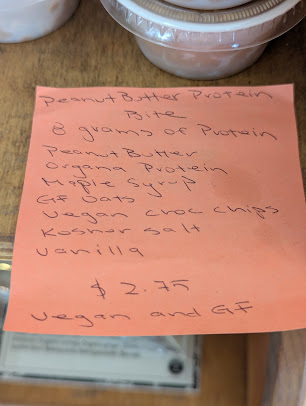 Peanut Butter Protein
Bite
8 grams of Protein
Peanut Butter
Orgama Protein
Maple Syrup
GF Oats
Vegan Choc Chips
Kosher Salt
Vanilla
$ 2.75
Vegan and GF